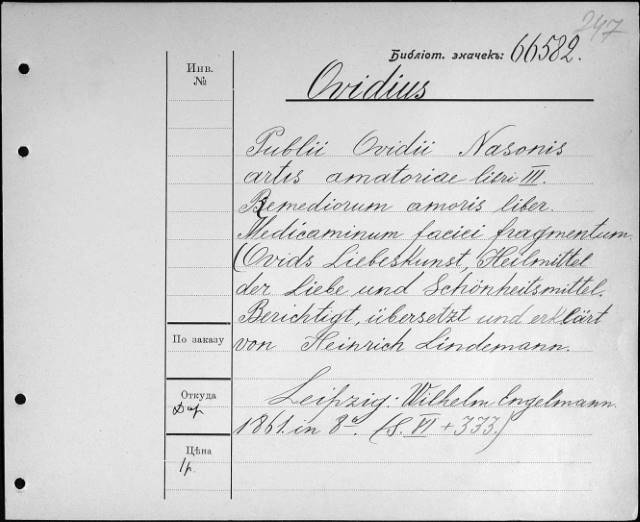 247
Библіот. значекъ: 66582.
Инв.
№
Ovidius
Publii Ovidii Nasonis
artis amatoriae libri III.
Remediorum amoris liber.
Medicaminum faciei fragmentum.
(Ovids Liebeskunst, Heilmittel
der Liebe und Schönheitsmittel.
Berichtigt, übersetzt und erklärt
По заказу
von Heinrich Lindemann.
Откуда
Дар
Leipzig: Wilhelm Engelmann.
1861. in 8°. (S. VI + 333.)
Цѣна
1р.